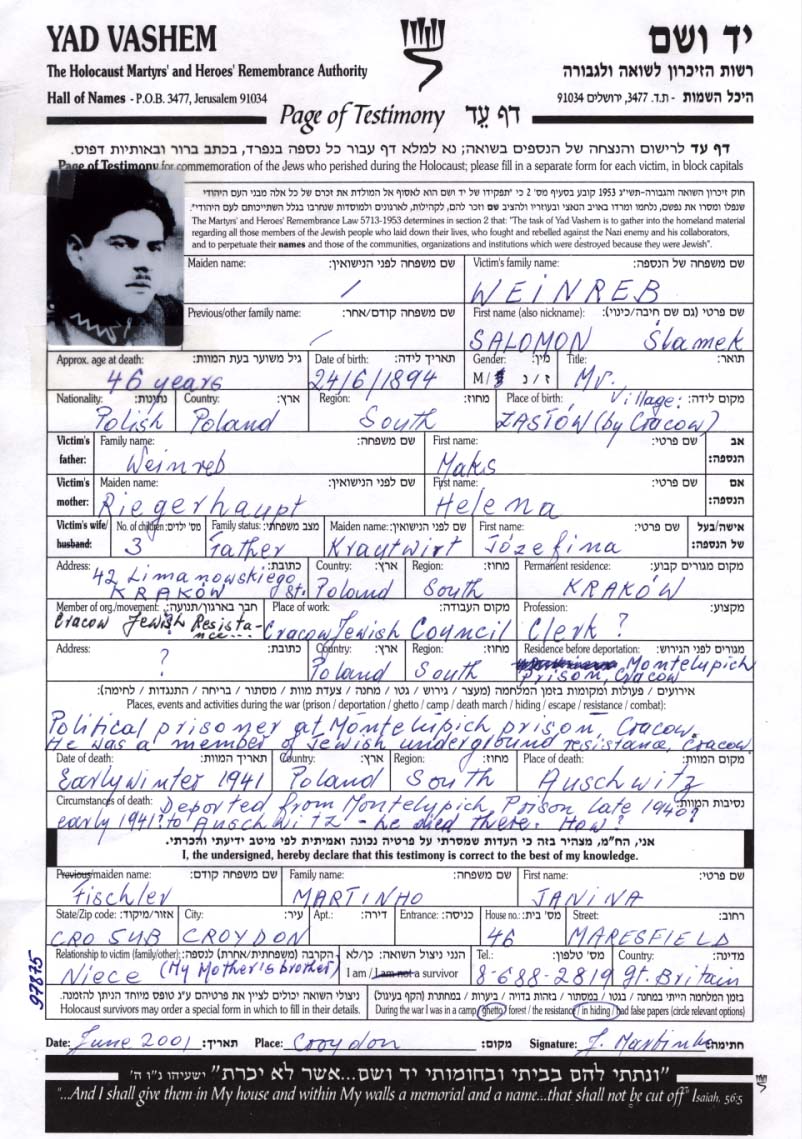 YAD VASHEM
יד ושם
The Holocaust Martyrs' and Heroes' Remembrance Authority
רשות הזיכרון לשואה ולגבורה
Hall of Names - P.O.B. 3477, Jerusalem 91034
היכל השמות - ת.ד. 3477, ירושלים 91034
Page of Testimony דף עֵד
דף עד לרישום והנצחה של הנספים בשואה; נא למלא דף עבור כל נספה בנפרד, בכתב ברור ובאותיות דפוס.
Page of Testimony for commemoration of the Jews who perished during the Holocaust; please fill in a separate form for each victim, in block capitals
חוק זיכרון השואה והגבורה-תשי"ג 1953 קובע בסעיף מס' 2 כי "תפקידו של יד ושם הוא לאסוף אל המולדת את זכרם של כל אלה מבני העם היהודי
שנפלו ומסרו את נפשם, נלחמו ומרדו באויב הנאצי ובעוזריו ולהציב שם וזכר להם, לקהילות, לארגונים ולמוסדות שנחרבו בגלל השתייכותם לעם היהודי".
The Martyrs' and Heroes' Remembrance Law 5713-1953 determines in section 2 that: "The task of Yad Vashem is to gather into the homeland material
regarding all those members of the Jewish people who laid down their lives, who fought and rebelled against the Nazi enemy and his collaborators,
and to perpetuate their names and those of the communities, organizations and institutions which were destroyed because they were Jewish".
Maiden name: שם משפחה לפני הנישואין: Victim's family name: שם משפחה של הנספה:
/ WEINREB
Previous/other family name: שם משפחה קודם/אחר: First name (also nickname): שם פרטי (גם שם חיבה/כינוי):
/ SALOMON Slamek
Approx. age at death: גיל משוער בעת המוות: Date of birth: תאריך לידה: Gender: מין: Title: תואר:
46 years 24/6/1894 M/ ז/נ Mr.
Nationality: נתינות: Country: ארץ: Region: מחוז: Place of birth: Village: מקום לידה:
Polish Poland South ZASTÓW (by Cracow)
Victim's father: Family name: שם משפחה: First name: שם פרטי: אב הנספה:
Weinreb Maks
Victim's mother: Maiden name: שם לפני הנישואין: First name: שם פרטי: אם הנספה:
Riegerhaupt Helena
Victim's wife/husband: No. of children: מס' ילדים: Family status: מצב משפחתי: Maiden name: שם לפני הנישואין: First name: שם פרטי: אישה/בעל של הנספה:
3 Father Krautwirt Józefina
Address: כתובת: Country: ארץ: Region: מחוז: Permanent residence: מקום מגורים קבוע:
42 Limanowskiego St. KRAKÓW Poland South KRAKÓW
Member of org./movement: חבר בארגון/תנועה: Place of work: מקום העבודה: Profession: מקצוע:
Cracow Jewish Resistance... Cracow Jewish Council Clerk ?
Address: כתובת: Country: ארץ: Region: מחוז: Residence before deportation: מגורים לפני הגירוש:
? Poland South Montelupich Prison, Cracow
אירועים / פעולות ומקומות בזמן המלחמה (מעצר / גירוש / גטו / מחנה / צעדת מוות / מסתור / בריחה / התנגדות / לחימה):
Places, events and activities during the war (prison / deportation / ghetto / camp / death march / hiding / escape / resistance / combat):
Political prisoner at Montelupich prison, Cracow.
He was a member of Jewish underground resistance, Cracow
Date of death: תאריך המוות: Country: ארץ: Region: מחוז: Place of death: מקום המוות:
Early winter 1941 Poland South Auschwitz
Circumstances of death: נסיבות המוות:
Deported from Montelypich Poison late 1940?
early 1941? to Auschwitz - he died there. How?
אני, הח"מ, מצהיר בזה כי העדות שמסרתי על פרטיה נכונה ואמיתית לפי מיטב ידיעתי והכרתי.
I, the undersigned, hereby declare that this testimony is correct to the best of my knowledge.
Previous/maiden name: שם משפחה קודם: Family name: שם משפחה: First name: שם פרטי:
Fischler MARTINHO JANINA
State/Zip code: אזור/מיקוד: City: עיר: Apt.: דירה: Entrance: כניסה: House no.: מס' בית: Street: רחוב:
CRO 5UB CROYDON 46 MARESFIELD
Relationship to victim (family/other): הקרבה (משפחתית/אחרת) לנספה: הנני ניצול השואה: כן/לא Tel.: מס' טלפון: Country: מדינה:
Niece (My Mother's brother) I am / I am not a survivor 8-688-2819 gt. Britain
ניצולי השואה יכולים לציין את פרטיהם ע"ג טופס מיוחד הניתן להזמנה. בזמן המלחמה הייתי במחנה / בגטו / במסתור / בזהות בדויה / ביערות / במחתרת (הקף בעיגול)
Holocaust survivors may order a special form in which to fill in their details. During the war I was in a camp / ghetto / forest / the resistance / in hiding / had false papers (circle relevant options)
97875
Date: June 2001 תאריך: Place: Croydon מקום: Signature: J. Martinho חתימה:
"ונתתי להם בביתי ובחומותי יד ושם...אשר לא יכרת" ישעיהו נ"ו ה'
"...And I shall give them in My house and within My walls a memorial and a name...that shall not be cut off" Isaiah, 56:5